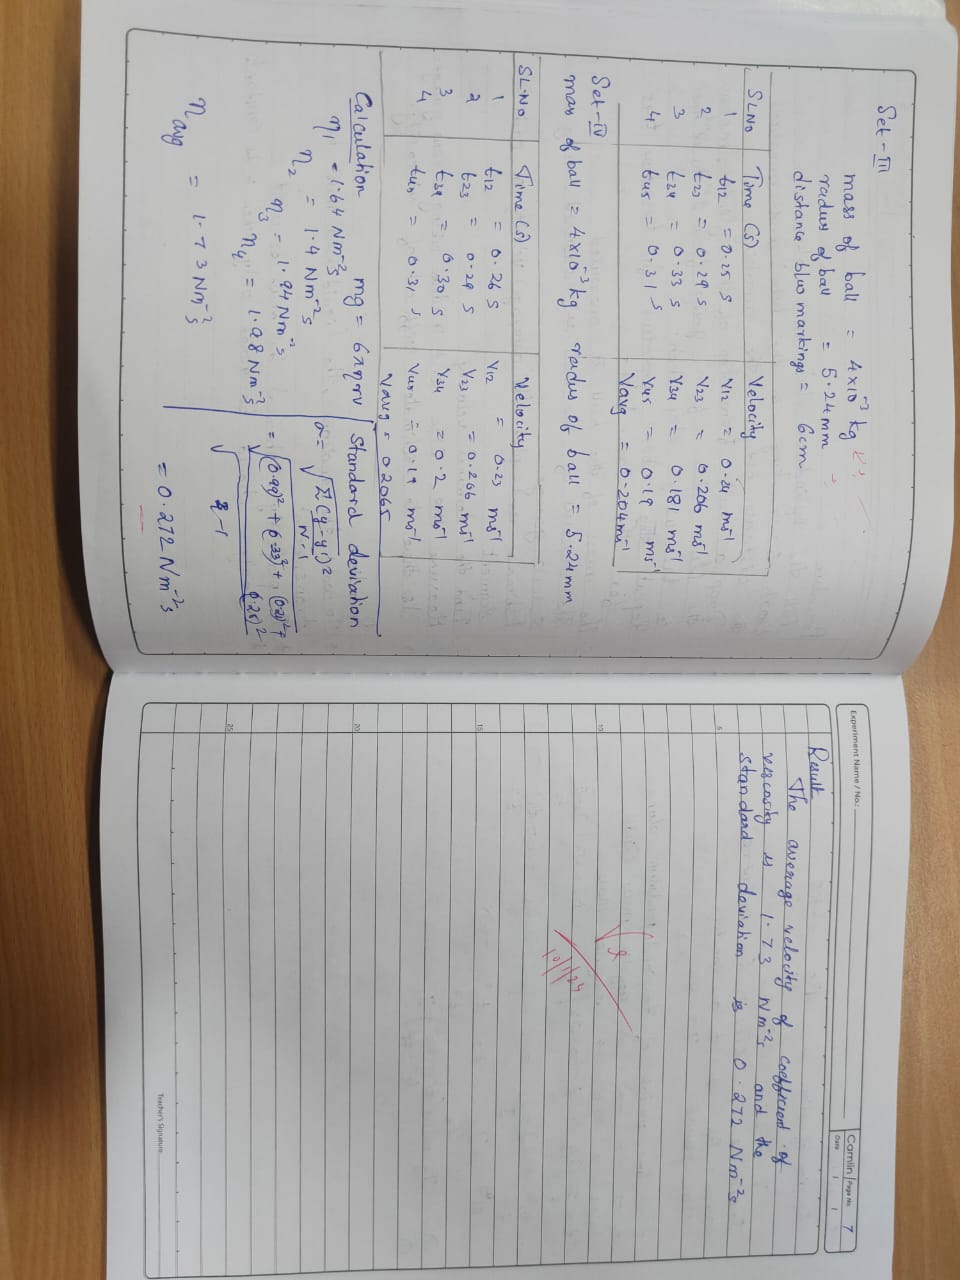 Set - III
mass of ball = 4x10⁻³ kg
radus of ball = 5.24 mm
distance b/w markings = 6cm
SL.NO Time (s) Velocity
1 t12 = 0.25 s V12 = 0.24 ms⁻¹
2 t23 = 0.29 s V23 = 0.206 ms⁻¹
3 t34 = 0.33 s V34 = 0.181 ms⁻¹
4 t45 = 0.31 s V45 = 0.19 ms⁻¹
Vavg = 0.204 ms⁻¹
Set - IV
mas of ball = 4x10⁻³ kg radus of ball = 5.24 mm
SL.NO Time (s) Velocity
1 t12 = 0.26 s V12 = 0.23 ms⁻¹
2 t23 = 0.29 s V23 = 0.206 ms⁻¹
3 t34 = 0.30 s V34 = 0.2 ms⁻¹
4 t45 = 0.31 s V45 = 0.19 ms⁻¹
Vavg = 0.2065
Calculation mg = 6πηrv
η1 = 1.64 Nm⁻²s
η2 = 1.4 Nm⁻²s
η3 = 1.94 Nm⁻²s
η4 = 1.98 Nm⁻²s
ηavg = 1.73 Nm⁻²s
Standard deviation
σ = √Σ(y-y1)²
N-1
= √(0.99)² + (.33)² + (0.21)² +
(0.25)²
-1
= 0.272 Nm⁻²s
Experiment Name / No.:
Camlin Page No. 7
Date
Result
The average velocity of coefficient of
viscosity is 1.73 Nm⁻²s and the
standard deviation is 0.272 Nm⁻²s
5
10
15
20
25
Teacher's Signature